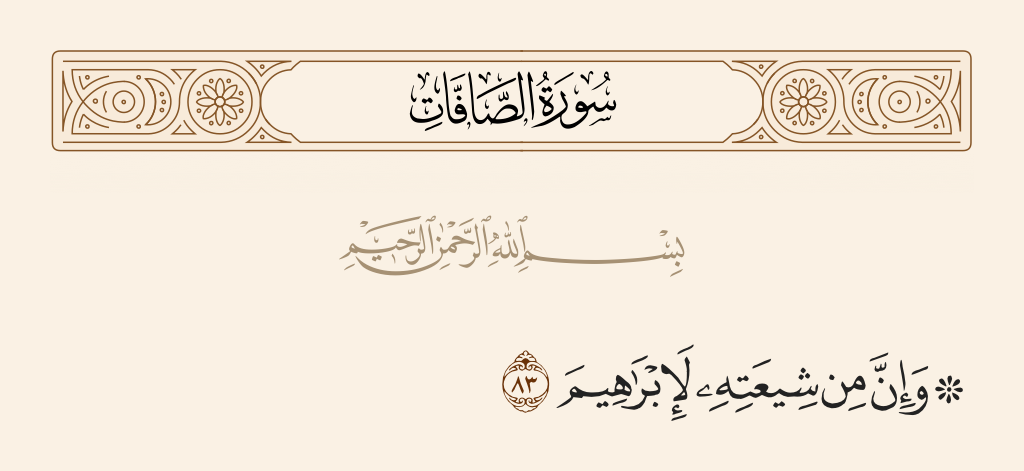 سُورَةُ الصَّافَّاتِ
بِسْمِ ٱللَّهِ ٱلرَّحْمَٰنِ ٱلرَّحِيمِ
۞ وَإِنَّ مِن شِيعَتِهِۦ لَإِبْرَٰهِيمَ ٨٣